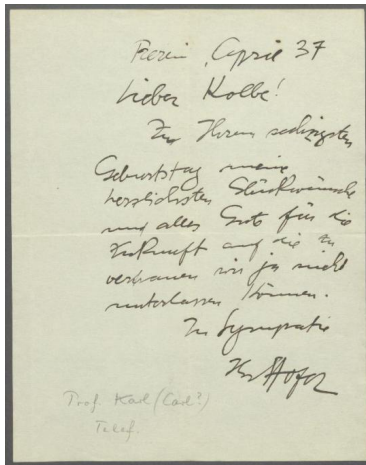 April 37
Lieber Kolbe!
Zu Ihrem sechzigsten
Geburtstag meine
herzlichsten Glückwünsche
und alles Gute für die
Zukunft auf die zu
vertrauen wir ja nicht
unterlassen können.
In Sympathie
Ihr Hofer
Prof. Karl (Carl?)